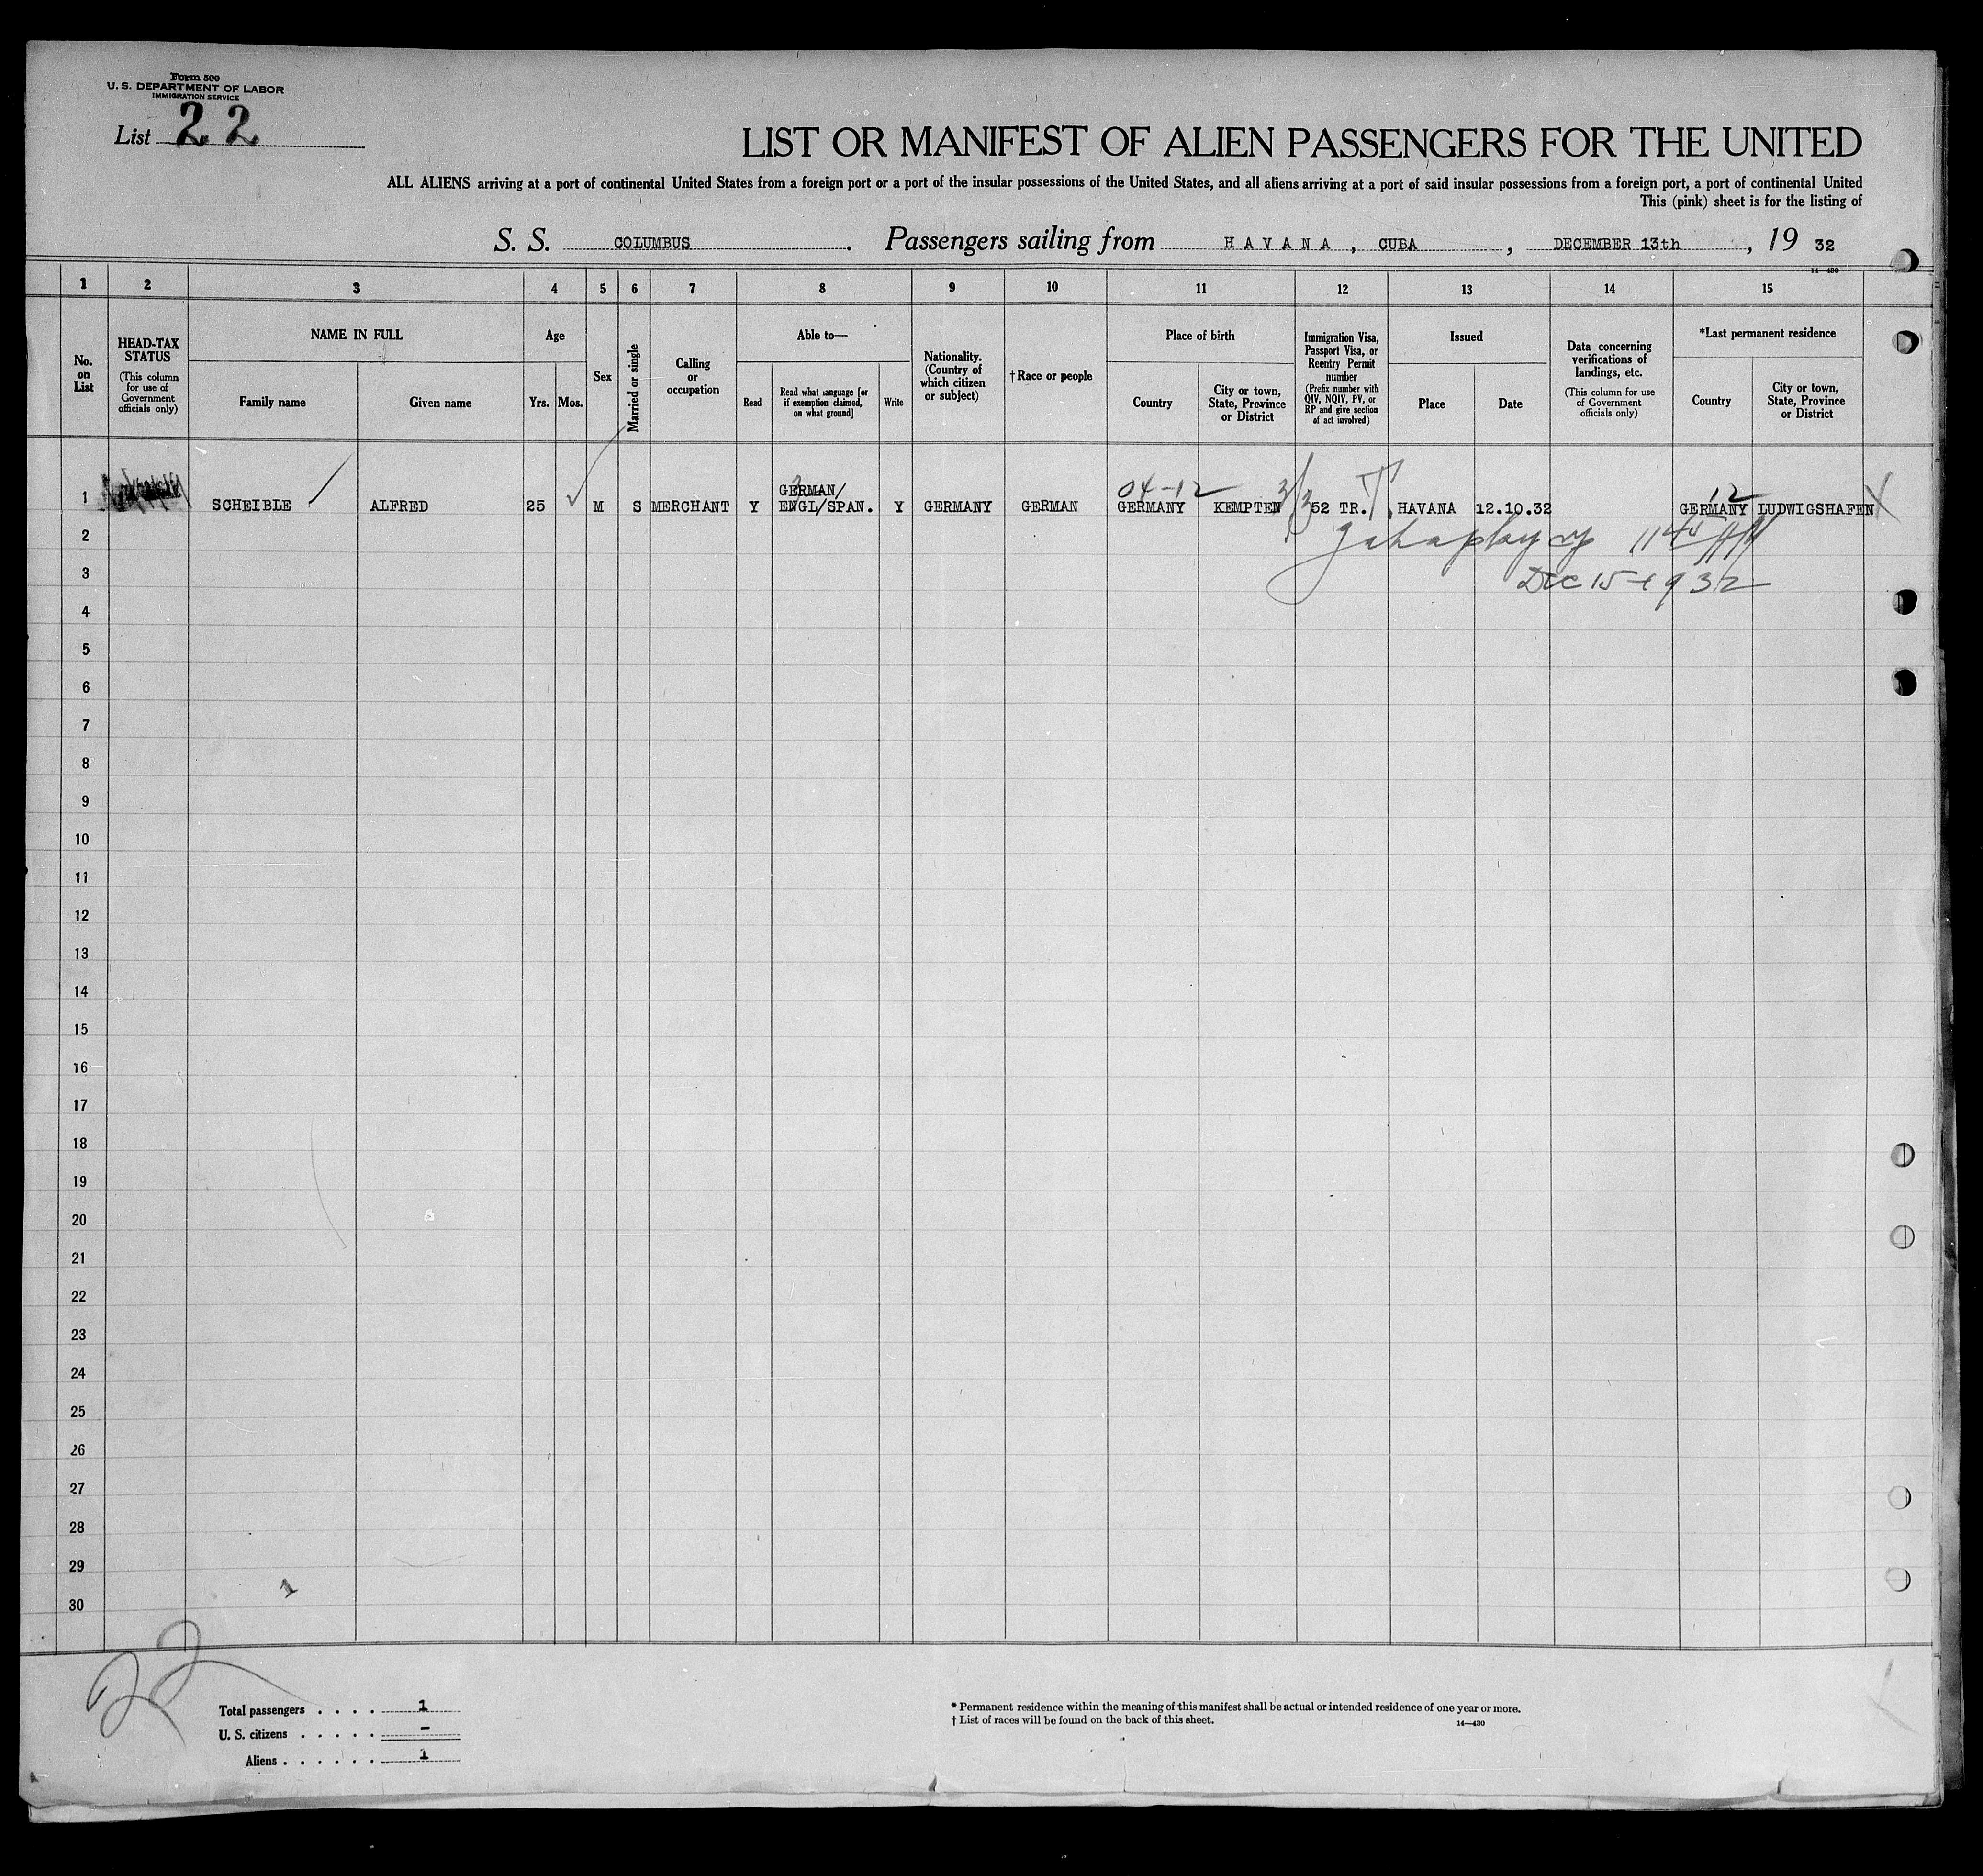 Form 500
U. S. DEPARTMENT OF LABOR
IMMIGRATION SERVICE
List 22
LIST OR MANIFEST OF ALIEN PASSENGERS FOR THE UNITED
ALL ALIENS arriving at a port of continental United States from a foreign port or a port of the insular possessions of the United States, and all aliens arriving at a port of said insular possessions from a foreign port, a port of continental United
This (pink) sheet is for the listing of
S. S. COLUMBUS. Passengers sailing from HAVANA, CUBA, DECEMBER 13th, 19 32
14—430
1 2 3 4 5 6 7 8 9 10 11 12 13 14 15
No. on List
HEAD-TAX STATUS
(This column for use of Government officials only)
NAME IN FULL
Family name
Given name
Age
Yrs. Mos.
Sex
Married or single
Calling or occupation
Able to—
Read
Read what language [or if exemption claimed, on what ground]
Write
Nationality. (Country of which citizen or subject)
†Race or people
Place of birth
Country
City or town, State, Province or District
Immigration Visa, Passport Visa, or Reentry Permit number
(Prefix number with QIV, NQIV, PV, or RP and give section of act involved)
Issued
Place
Date
Data concerning verifications of landings, etc.
(This column for use of Government officials only)
*Last permanent residence
Country
City or town, State, Province or District
04-12
12
GERMAN/
1 SCHEIBLE ALFRED 25 M S MERCHANT Y ENGL/SPAN. Y GERMANY GERMAN GERMANY KEMPTEN 52 TR. HAVANA 12.10.32 GERMANY LUDWIGSHAFEN
2
Dec 15-1932
3
4
5
6
7
8
9
10
11
12
13
14
15
16
17
18
19
20
21
22
23
24
25
26
27
28
29
30
22
Total passengers . . . . 1
U. S. citizens . . . . . -
Aliens . . . . . . 1
* Permanent residence within the meaning of this manifest shall be actual or intended residence of one year or more.
† List of races will be found on the back of this sheet.
14—430